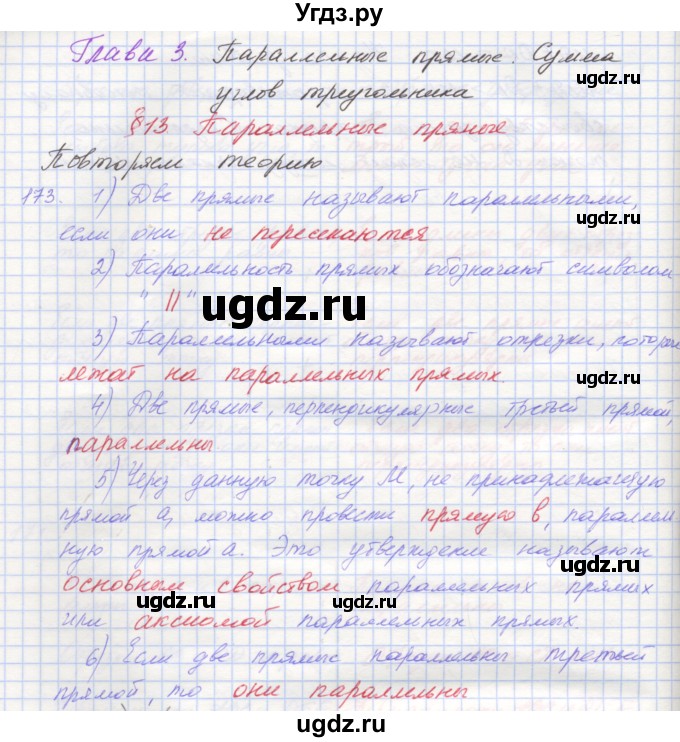 Угдз.ру
Глава 3. Параллельные прямые. Сумма
углов треугольника
§13 Параллельные прямые
Повторяем теорию
173. 1) Две прямые называют параллельными,
если они не пересекаются
2) Параллельность прямых обозначают символом
" || "
3) Параллельными называют отрезки, которые
лежат на параллельных прямых.
4) Две прямые, перпендикулярные третьей прямой,
параллельны
5) Через данную точку М, не принадлежащую
прямой а, можно провести прямую в, параллель-
ную прямой а. Это утверждение называют
основным свойством параллельных прямых
или аксиомой параллельных прямых.
6) Если две прямые параллельны третьей
прямой, то они параллельны
ugdz.ru
ugdz.ru
ugdz.ru
ugdz.ru
ugdz.ru
ugdz.ru
ugdz.ru
ugdz.ru
ugdz.ru
ugdz.ru
ugdz.ru